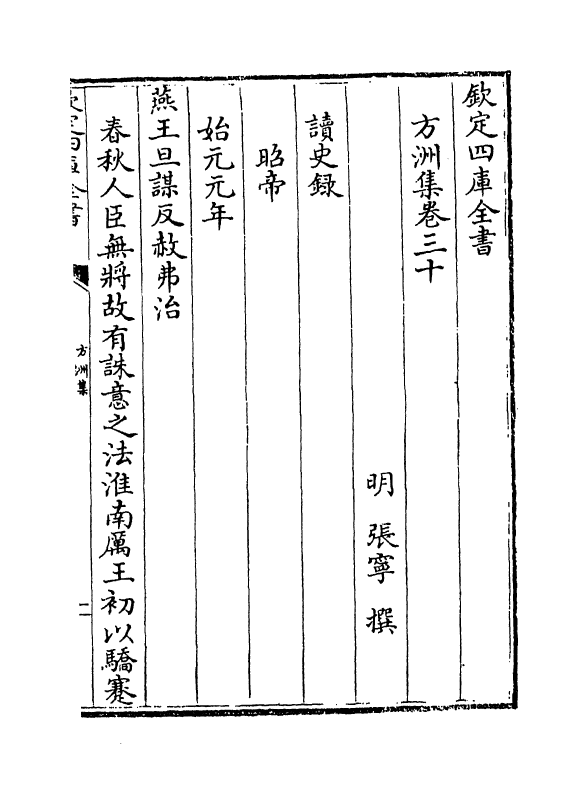 欽定四庫全書
方洲集卷三十
明 張寧 撰
讀史録
昭帝
始元元年
燕王旦謀反赦弗治
春秋人臣無將故有誅意之法淮南厲王初以驕蹇
欽定四庫全書
方洲集